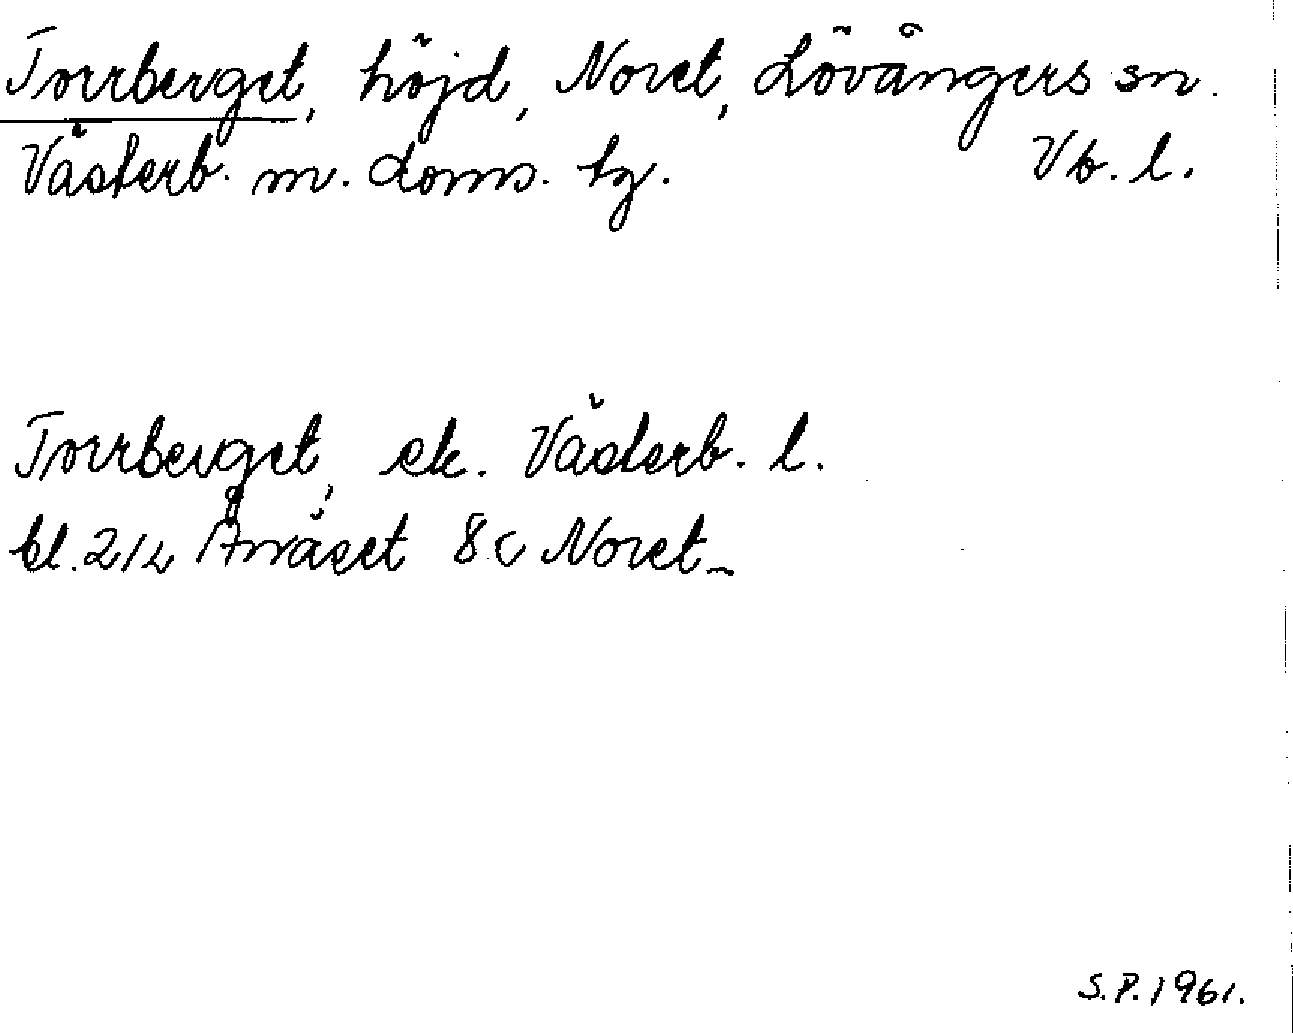 Torrberget, höjd, Noret, Lövångers sn.
Västerb. m. doms. tg. Vb. l.
Torrberget, ek. Västerb. l.
bl. 21L Ånäset 8c Noret
S.P. 1961.